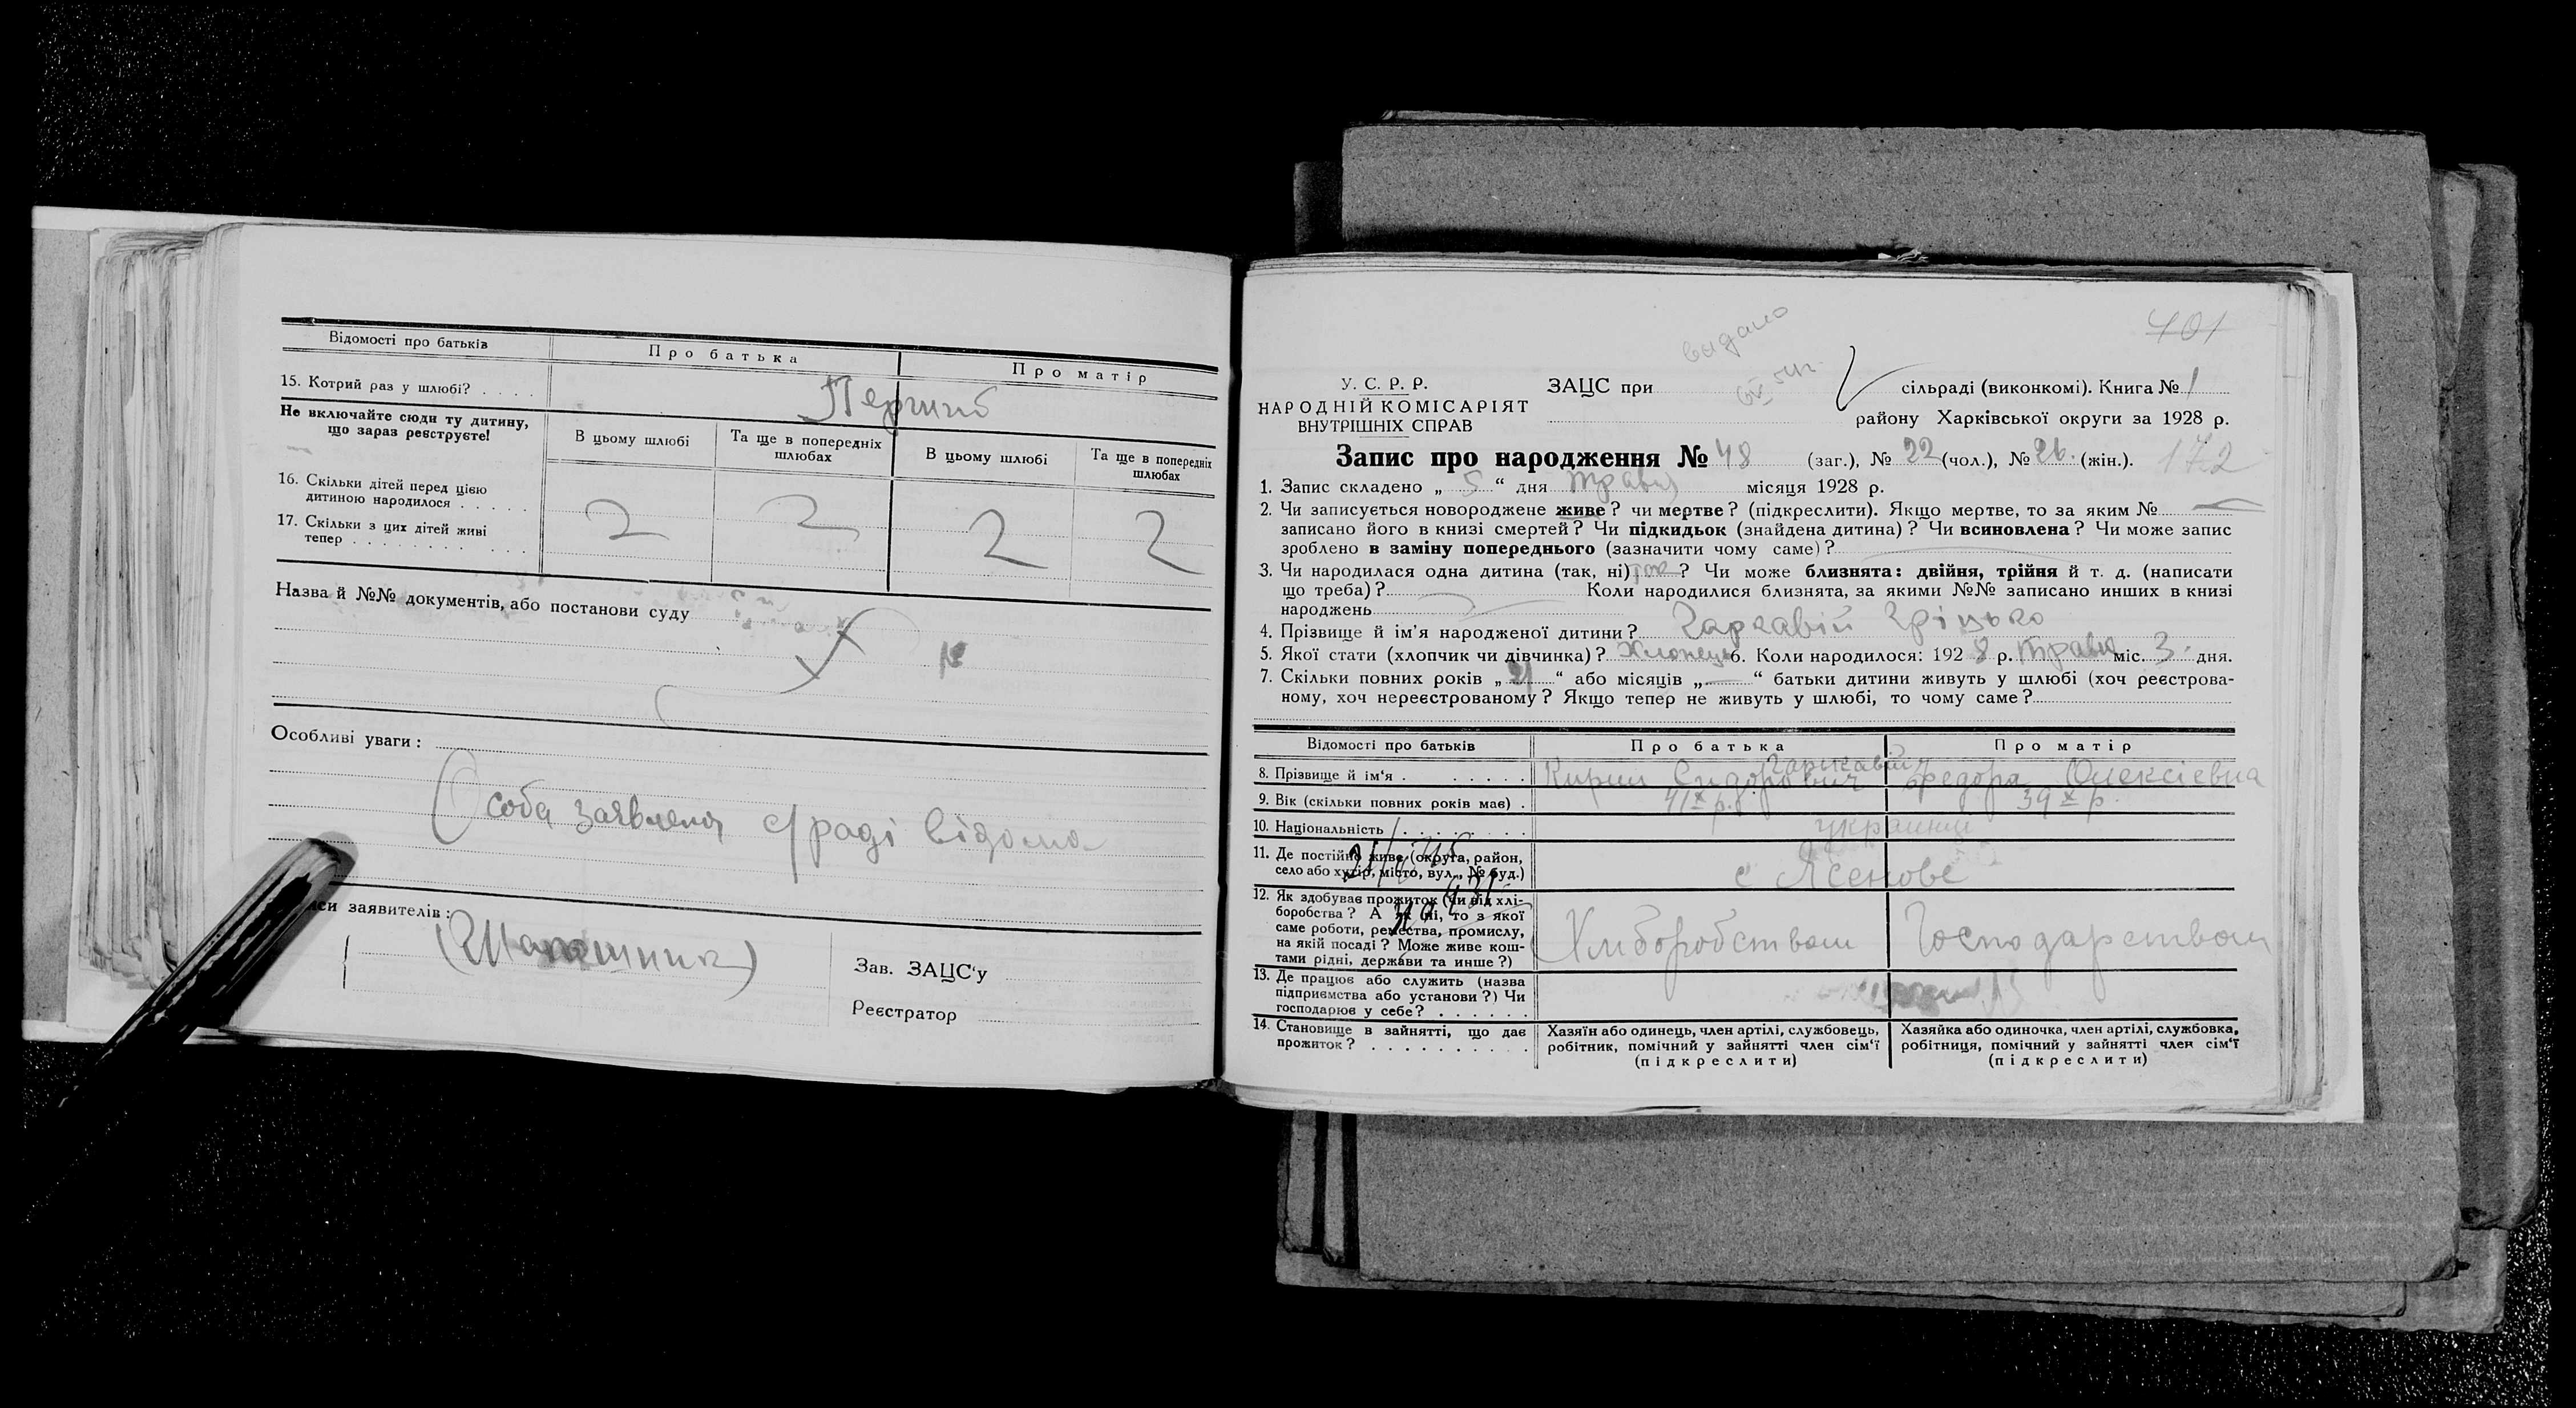 Відомості про батьків
Про батька
Про матір
15. Котрий раз у шлюбі? . . . .
Перший
Не включайте сюди ту дитину,
що зараз реєструєте!
В цьому шлюбі
Та ще в попередніх
шлюбах
В цьому шлюбі
Та ще в попередніх
шлюбах
16. Скільки дітей перед цією
дитиною народилося . . . . .
17. Скільки з цих дітей живі
тепер . . . . . . . . . . .
2 2 2 2
Назва й №№ документів, або постанови суду
Особливі уваги:
Особа заявителя с/раді відома
си заявителів:
Зав. ЗАЦС'у
Реєстратор
видано
401
У. С. Р. Р.
НАРОДНІЙ КОМІСАРІЯТ
ВНУТРІШНІХ СПРАВ
ЗАЦС при сільраді (виконкомі). Книга № 1
району Харківської округи за 1928 р.
Запис про народження № 48 (заг.), № 22 (чол.), № 26. (жін.). 172
1. Запис складено „ 5 “ дня травня місяця 1928 р.
2. Чи записується новороджене живе? чи мертве? (підкреслити). Якщо мертве, то за яким №
записано його в книзі смертей? Чи підкидьок (знайдена дитина)? Чи всиновлена? Чи може запис
зроблено в заміну попереднього (зазначити чому саме)?
3. Чи народилася одна дитина (так, ні) так? Чи може близнята: двійня, трійня й т. д. (написати
що треба)? Коли народилися близнята, за якими №№ записано инших в книзі
народжень
4. Прізвище й ім'я народженої дитини? Гаркавій Гріцько
5. Якої стати (хлопчик чи дівчинка)? Хлопець 6. Коли народилося: 192 8 р. травня міс. 3 дня.
7. Скільки повних років „ 21 “ або місяців „ — “ батьки дитини живуть у шлюбі (хоч реєстрова-
ному, хоч нереєстрованому? Якщо тепер не живуть у шлюбі, то чому саме?
Відомості про батьків
Про батька
Про матір
8. Прізвище й ім'я . . . . . .
Гаркавій
Кирил Сидорович
Федора Олексієвна
9. Вік (скільки повних років має) .
41 р.
39 р.
10. Національність . . . . . . . .
українці
11. Де постійно живе (округа, район,
село або хутір, місто, вул., № буд.)
с Ясенове
12. Як здобуває прожиток (чи від хлі-
боробства? А як ні, то з якої
саме роботи, ремества, промислу,
на якій посаді? Може живе кош-
тами рідні, держави та инше?)
Хліборобством
Господарством
13. Де працює або служить (назва
підприємства або установи?) Чи
господарює у себе? . . . . . .
14. Становище в зайнятті, що дає
прожиток? . . . . . . . . . .
Хазяїн або одинець, член артілі, службовець,
робітник, помічний у зайнятті член сім'ї
(підкреслити)
Хазяйка або одиночка, член артілі, службовка,
робітниця, помічний у зайнятті член сім'ї
(підкреслити)